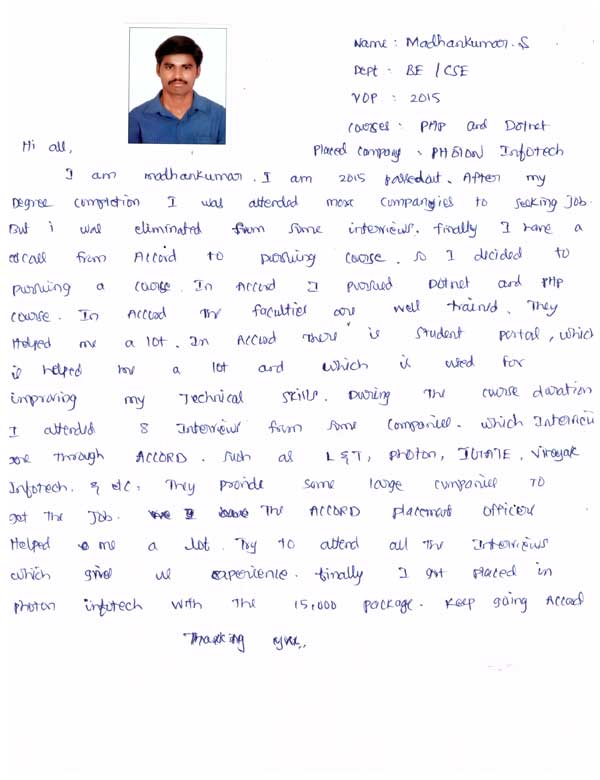 Name : Madhankumar.S
Dept : BE / CSE
YOP : 2015
Courses : PHP and Dotnet
Hi all,
Placed Company : PHOTON Infotech
I am madhankumar. I am 2015 passedout. After my
Degree completion I was attended more companyies to seeking Job.
But i was eliminated from some interviews. finally I have a
call from Accord to pursuing course. so I decided to
pursuing a course. In Accord I pursued Dotnet and PHP
course. In Accord the faculties are well trained. They
Helped me a lot. In Accord there is student portal, which
is helped me a lot and which is used for
improving my Technical skills. During the course duration
I attended 8 Interviews from some companies. which Interview
are through ACCORD. such as L&T, photon, Vinayak
Infotech. & etc. They provide some large companies to
get the Job. The ACCORD placement officers
Helped me a lot. Try to attend all the Interviews
which gives us experience. finally I got placed in
photon infotech with the 15,000 package. Keep going Accord
Thanking you..